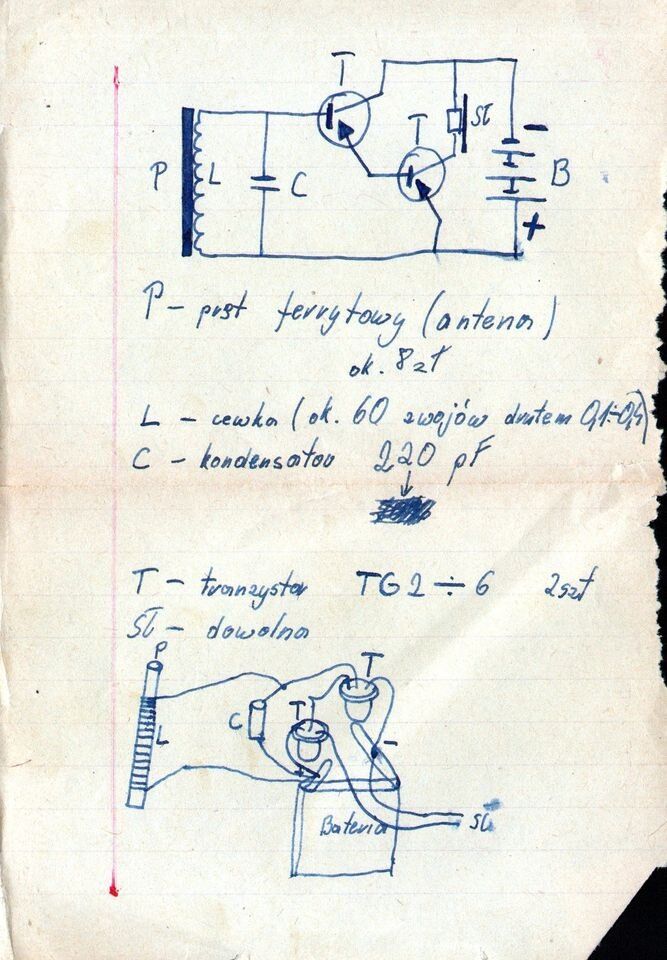 T
T
SŁ
P L C
B
-
+
P – pręt ferrytowy (antena)
ok. 8 zł
L – cewka (ok. 60 zwojów drutem 0,1÷0,4)
C – kondensator 220 pF
T – tranzystor TG2 ÷ 6 2szt
SŁ – dowolna
P
T
T
C
L
-
+
Bateria
SŁ